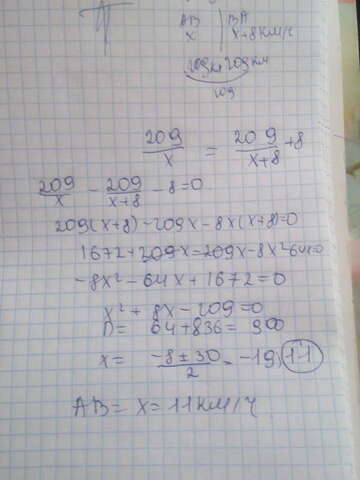 AB | BA
x | x+8км/ч
209км 209км
209
209/x = 209/x+8 +8
209/x - 209/x+8 - 8=0
209(x+8)-209x-8x(x+8)=0
1672+209x=209x-8x²-64x=0
-8x²-64x+1672=0
x²+8x-209=0
D= 64+836= 900
x= -8±30/2 = -19; 11
AB= x= 11км/ч